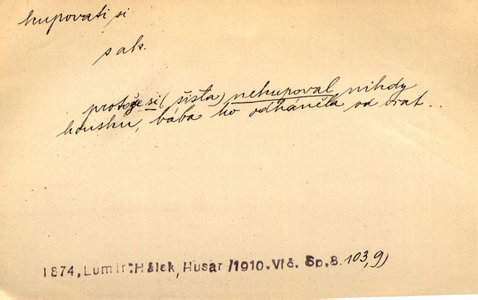 kupovati si
s ak.
protože si (šista) nekupoval nikdy
housku, bába ho odháněla od vrat..
1874, Lumír: Hálek, Husar /1910. Vlč. Sp, 8. 103, 9)